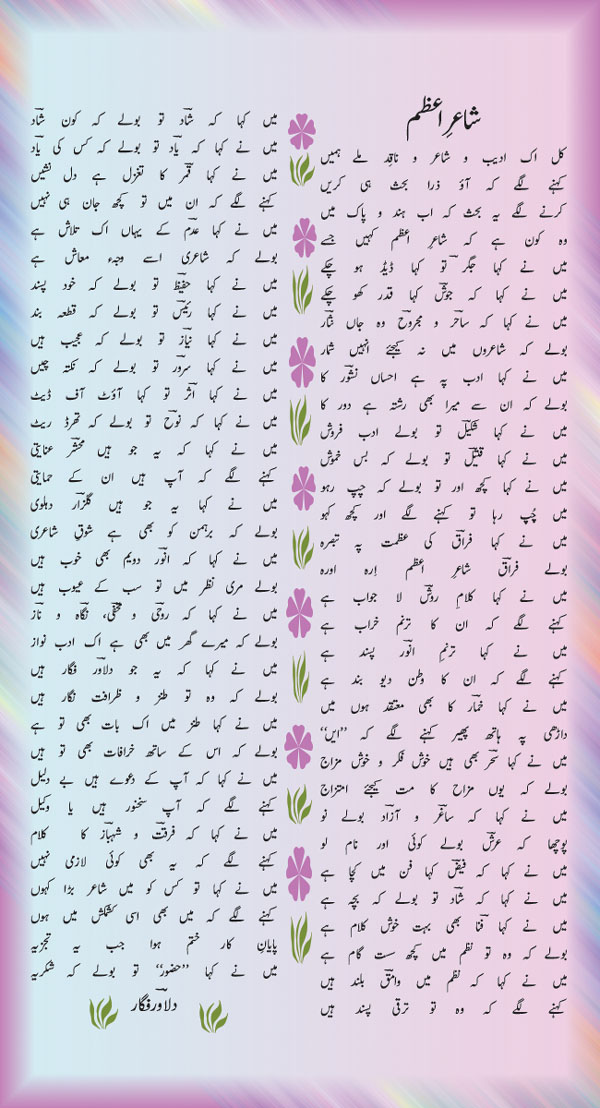 شاعرِ اعظم
کل اک ادیب و شاعر و ناقد ملے ہمیں
کہنے لگے کہ آؤ ذرا بحث ہی کریں
کرنے لگے یہ بحث کہ اب ہند و پاک میں
وہ کون ہے کہ شاعرِ اعظم کہیں جسے
میں نے کہا جگر تو کہا ڈیڈ ہو چکے
میں نے کہا کہ جوش کہا قدر کھو چکے
میں نے کہا کہ ساحر و مجروح وہ جاں نثار
بولے کہ شاعروں میں نہ کیجئے انہیں شمار
میں نے کہا ادب پہ ہے احساں نشور کا
بولے کہ ان سے میرا بھی رشتہ ہے دور کا
میں نے کہا شکیل تو بولے ادب فروش
میں نے کہا قتیل تو بولے کہ بس خموش
میں نے کہا کچھ اور تو بولے کہ چپ رہو
میں چُپ رہا تو کہنے لگے اور کچھ کہو
میں نے کہا فراق کی عظمت پہ تبصرہ
بولے فراق شاعرِ اعظم ارہ اورہ
میں نے کہا کلامِ روش لا جواب ہے
کہنے لگے کہ ان کا ترنم خراب ہے
میں نے کہا ترنمِ انور پسند ہے
کہنے لگے کہ ان کا وطن دیو بند ہے
میں نے کہا خمار کا بھی معتقد ہوں میں
داڑھی پہ ہاتھ پھیر کہنے لگے کہ ’’ایں‘‘
میں نے کہا سحر بھی ہیں خوش فکر و خوش مزاج
بولے کہ یوں مزاح کا مت کیجئے امتزاج
میں نے کہا کہ ساغر و آزاد بولے نو
پوچھا کہ عرش بولے کوئی اور نام لو
میں نے کہا کہ فیض کہا فن میں کچا ہے
میں نے کہا کہ شاد تو بولے کہ بچہ ہے
میں نے کہا فنا بھی بہت خوش کلام ہے
بولے کہ وہ تو نظم میں کچھ سست گام ہے
میں نے کہا کہ نظم میں وامق بلند ہیں
کہنے لگے کہ وہ تو ترقی پسند ہیں
میں کہا کہ شاد تو بولے کہ کون شاد
میں نے کہا کہ یاد تو بولے کہ کس کی یاد
میں نے کہا قمر کا تغزل ہے دل نشیں
کہنے لگے کہ ان میں تو کچھ جان ہی نہیں
میں نے کہا عدم کے یہاں اک تلاش ہے
بولے کہ شاعری اسے وجہء معاش ہے
میں نے کہا حفیظ تو بولے کہ خود پسند
میں نے کہا رئیس تو بولے کہ قطعہ بند
میں نے کہا نیاز تو بولے کہ عجیب ہیں
میں نے کہا سرور تو بولے کہ نکتہ چیں
میں نے کہا اثر تو کہا آؤٹ آف ڈیٹ
میں نے کہا کہ نوح تو بولے کہ تھرڈ ریٹ
میں نے کہا کہ یہ جو ہیں محشر عنایتی
کہنے لگے کہ آپ ہیں ان کے حمایتی
میں نے کہا یہ جو ہیں گلزار دہلوی
بولے کہ برہمن کو بھی ہے شوقِ شاعری
میں نے کہا کہ انور دویم بھی خوب ہیں
بولے مری نظر میں تو سب کے عیوب ہیں
میں نے کہا کہ روحی و مخفی، نگاہ و ناز
بولے کہ میرے گھر میں بھی ہے اک ادب نواز
میں نے کہا کہ یہ جو دلاور فگار ہیں
بولے کہ وہ تو طنز و ظرافت نگار ہیں
میں نے کہا طنز میں اک بات بھی تو ہے
بولے کہ اس کے ساتھ خرافات بھی تو ہیں
میں نے کہا کہ آپ کے دعوے ہیں بے دلیل
کہنے لگے کہ آپ سخنور ہیں یا وکیل
میں نے کہا کہ فرقت و شہباز کا کلام
کہنے لگے کہ یہ بھی کوئی لازمی نہیں
میں نے کہا تو کس کو میں شاعر بڑا کہوں
کہنے لگے کہ میں بھی اسی کشمکش میں ہوں
پایانِ کار ختم ہوا جب یہ تجزیہ
میں نے کہا ’’حضور‘‘ تو بولے کہ شکریہ
دلاور فگار